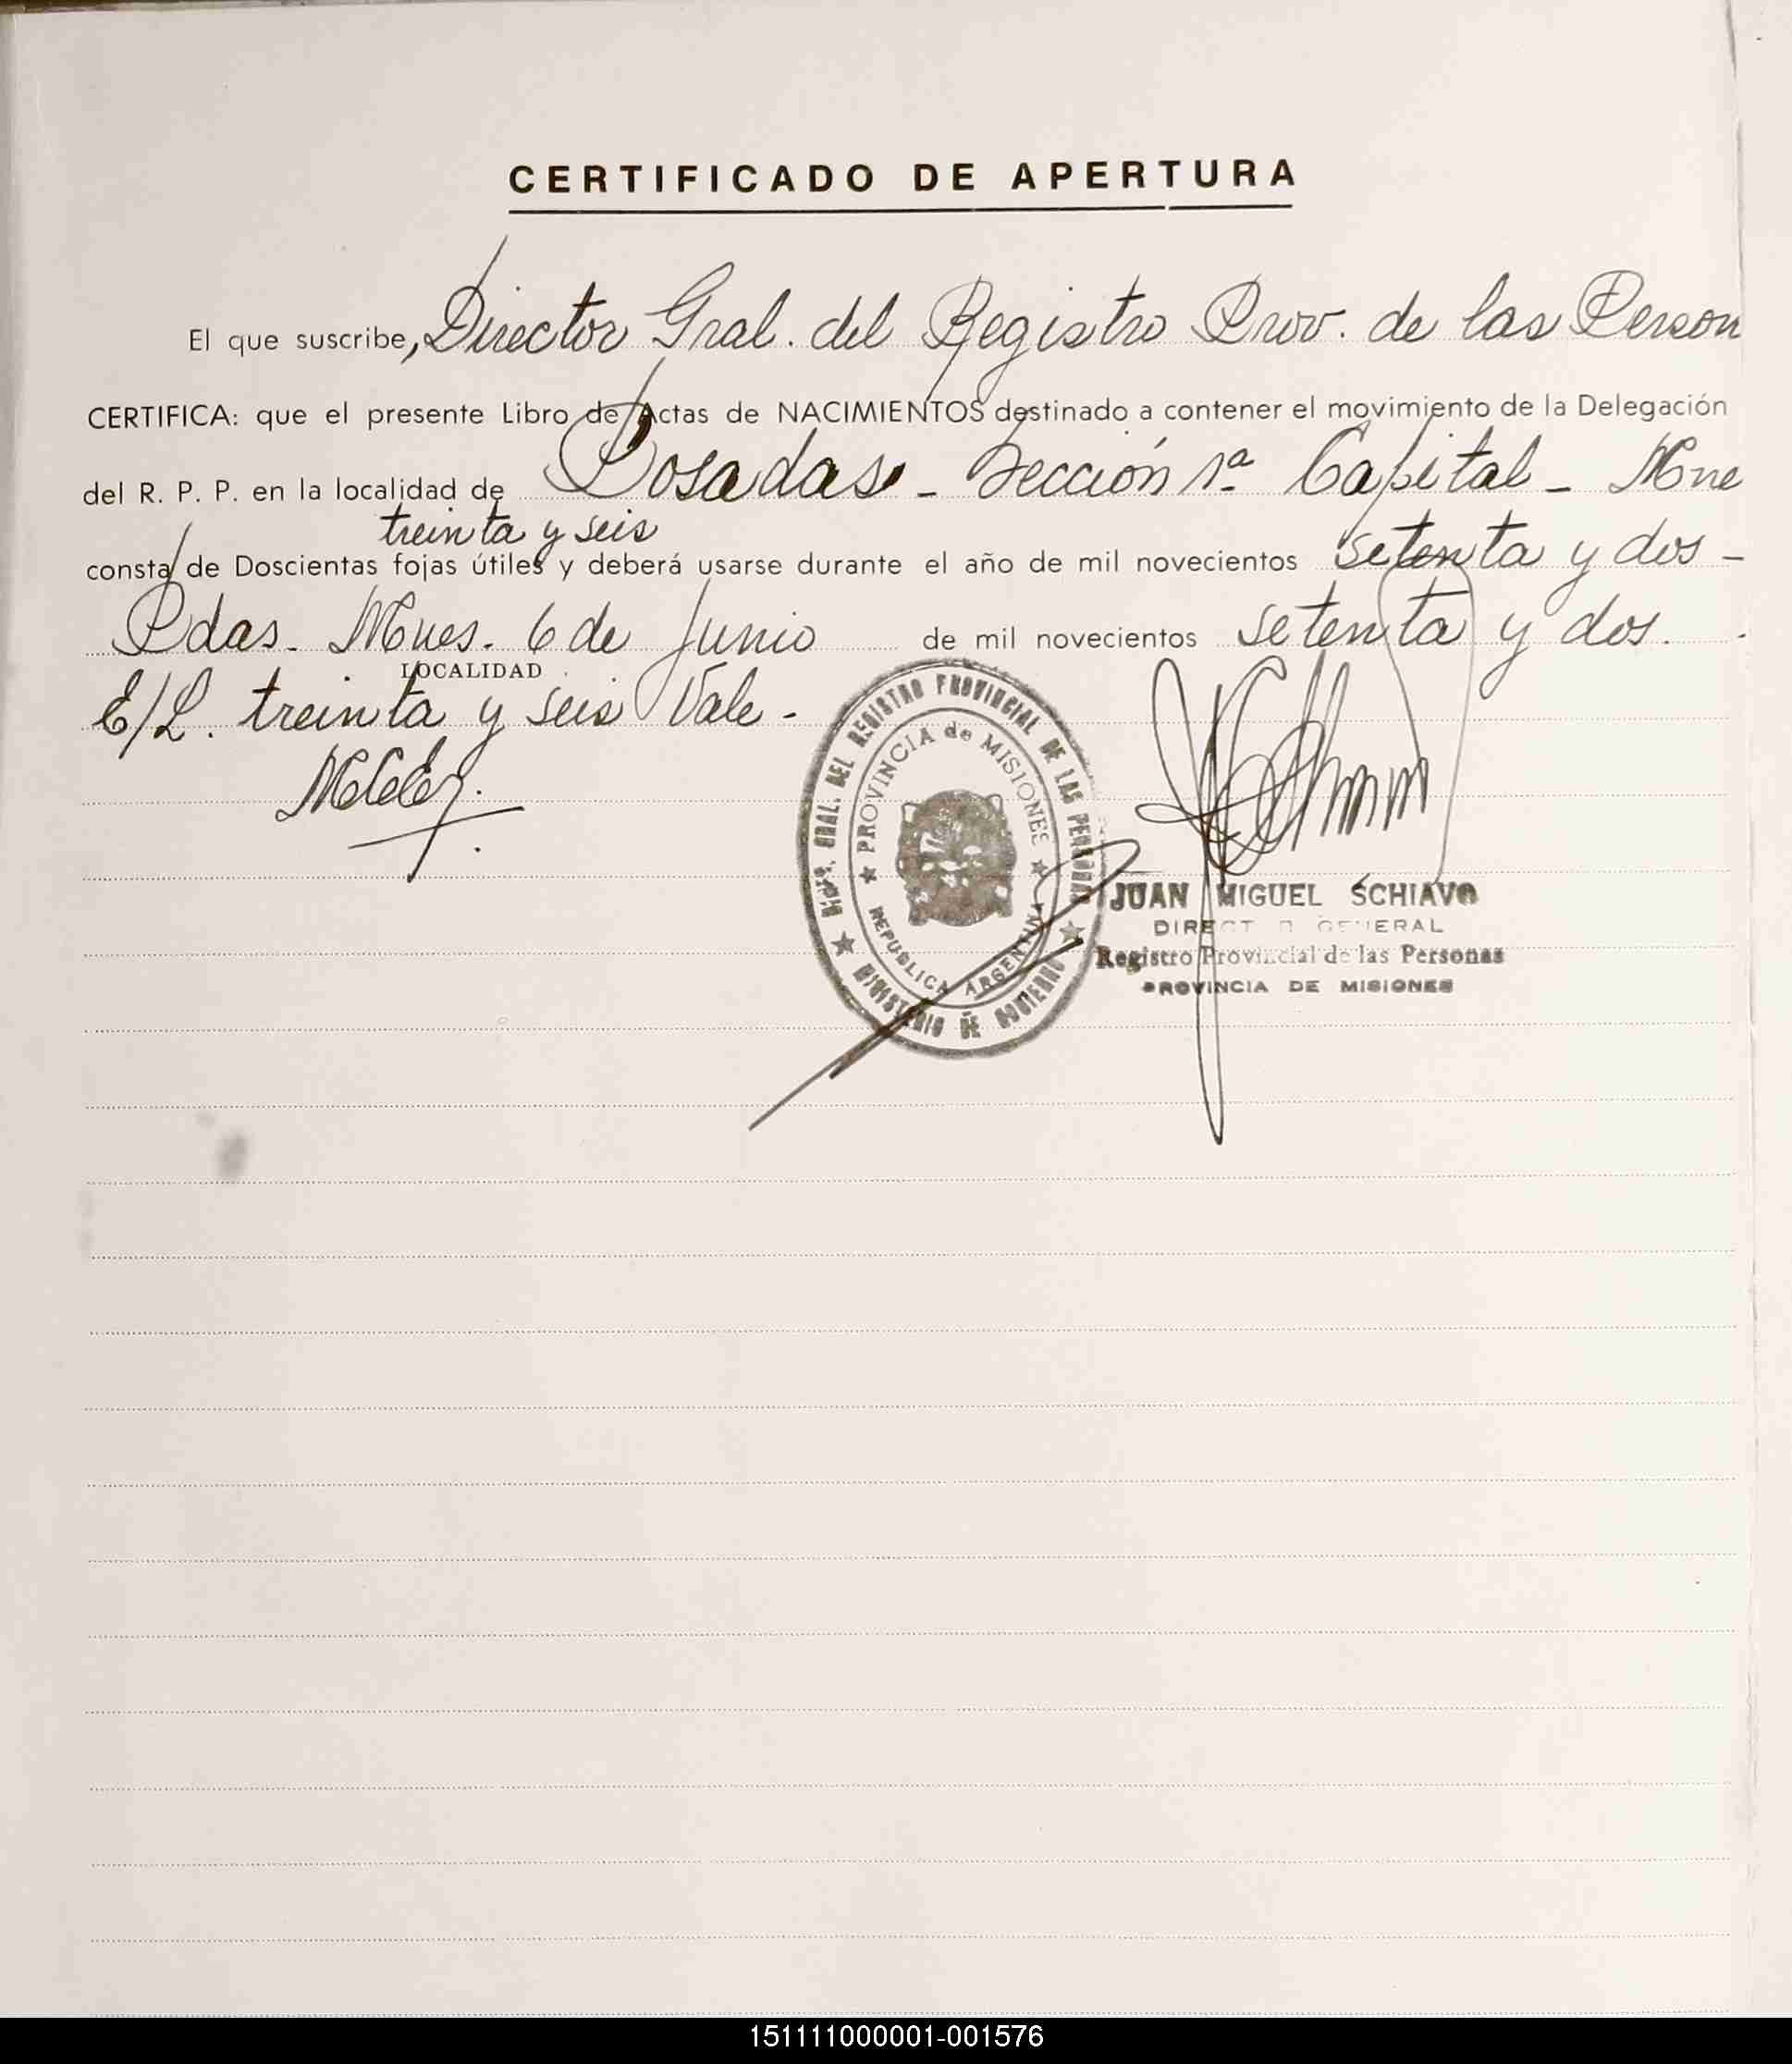 CERTIFICADO DE APERTURA
El que suscribe, Director Gral. del Registro Prov. de las Person
CERTIFICA: que el presente Libro de Actas de NACIMIENTOS destinado a contener el movimiento de la Delegación
del R. P. P. en la localidad de Posadas - Sección 1ª Capital - Mne
treinta y seis
consta de Doscientas fojas útiles y deberá usarse durante el año de mil novecientos setenta y dos -
Pdas. Mnes. 6 de Junio de mil novecientos setenta y dos.
LOCALIDAD
E/L. treinta y seis Vale -
GRAL. DEL REGISTRO PROVINCIAL DE LAS PERSONAS
MINISTERIO DE GOBIERNO
PROVINCIA de MISIONES
REPUBLICA ARGENTINA
JUAN MIGUEL SCHIAVO
DIRECTOR GENERAL
Registro Provincial de las Personas
PROVINCIA DE MISIONES
151111000001-001576